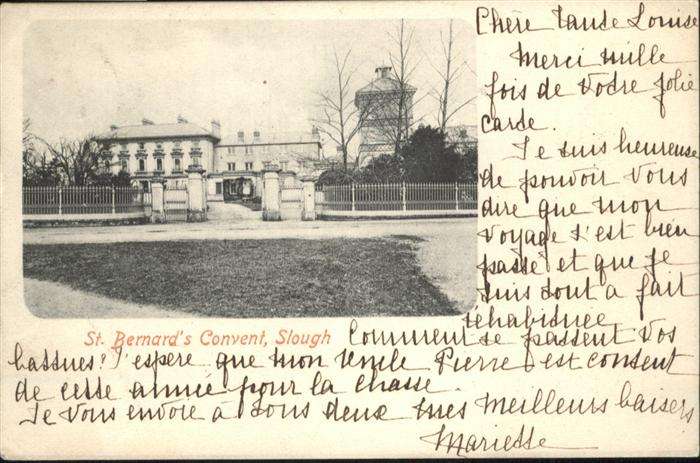 Chère Tante Louise
Merci mille
fois de votre jolie
carte.
Je suis heureuse
de pouvoir vous
dire que mon
voyage s'est bien
passé et que je
suis tout à fait
réhabituée.
St. Bernard's Convent, Slough
Comment se passent vos
battues? J'espère que mon oncle Pierre est content
de cette année pour la chasse.
Je vous envoie à tous deux mes meilleurs baisers
Mariette